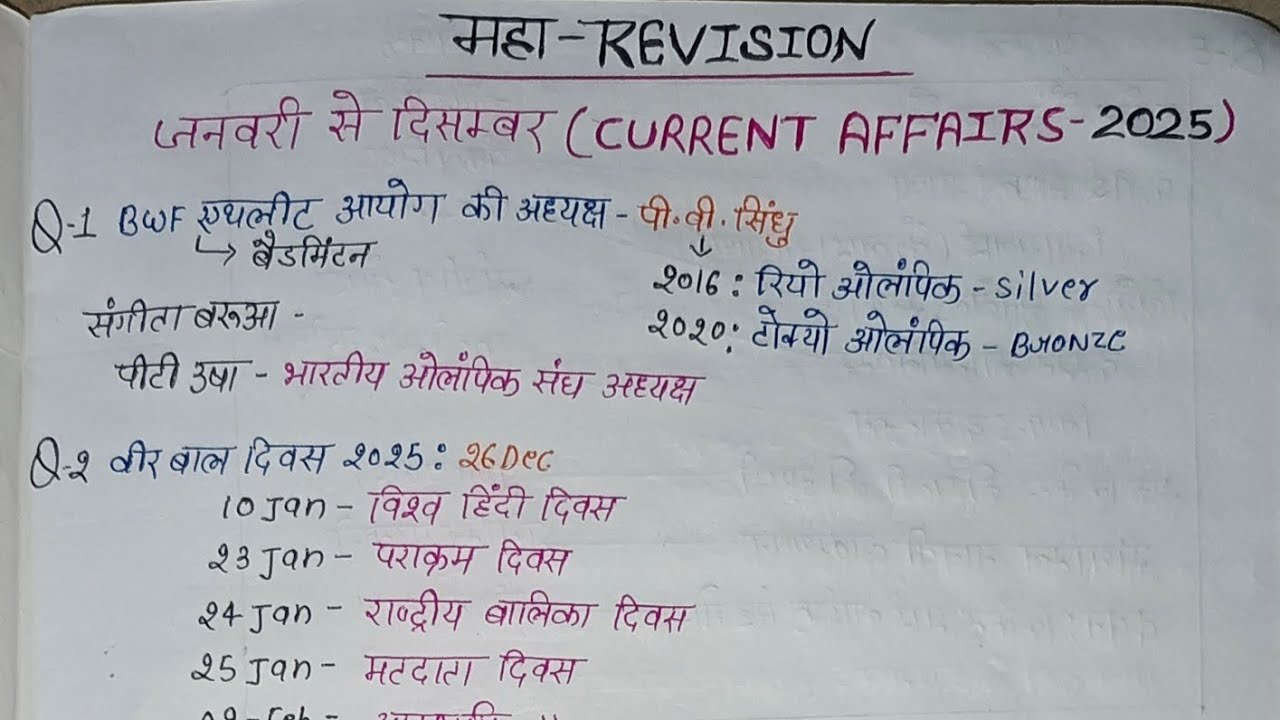 महा-REVISION
जनवरी से दिसम्बर (CURRENT AFFAIRS-2025)
Q-1 BWF एथलीट आयोग की अध्यक्ष - पी.वी. सिंधु
↳ बैडमिंटन
↓
2016: रियो ओलंपिक - Silver
संगीता बरुआ -
2020: टोक्यो ओलंपिक - Bronze
पीटी उषा - भारतीय ओलंपिक संघ अध्यक्ष
Q-2 वीर बाल दिवस 2025: 26 Dec
10 Jan - विश्व हिंदी दिवस
23 Jan - पराक्रम दिवस
24 Jan - राष्ट्रीय बालिका दिवस
25 Jan - मतदाता दिवस